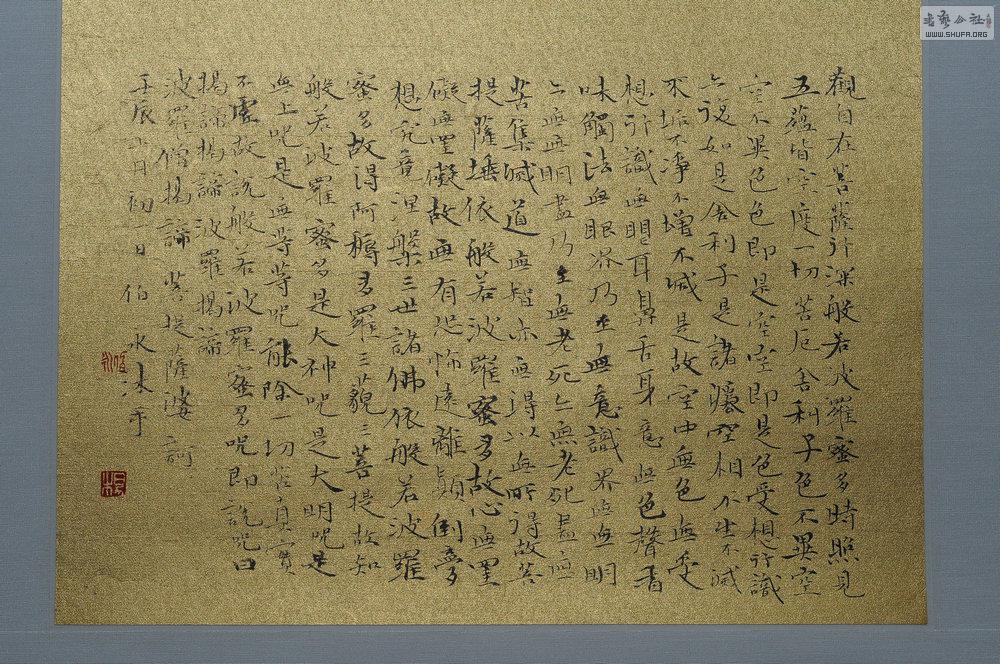 觀自在菩薩行深般若波羅蜜多時照見
五蘊皆空度一切苦厄舍利子色不異空
空不異色色即是空空即是色受想行識
亦復如是舍利子是諸法空相不生不滅
不垢不淨不增不減是故空中無色無受
想行識無眼耳鼻舌身意無色聲香
味觸法無眼界乃至無意識界無無明
亦無無明盡乃至無老死亦無老死盡無
苦集滅道無智亦無得以無所得故菩
提薩埵依般若波羅蜜多故心無罣
礙無罣礙故無有恐怖遠離顛倒夢
想究竟涅槃三世諸佛依般若波羅
蜜多故得阿耨多羅三藐三菩提故知
般若波羅蜜多是大神咒是大明咒是
無上咒是無等等咒能除一切苦真實
不虛故說般若波羅蜜多咒即說咒曰
揭諦揭諦波羅揭諦
波羅僧揭諦菩提薩婆訶
壬辰正月初一日伯永沐手
书艺公社
WWW.SHUFA.ORG